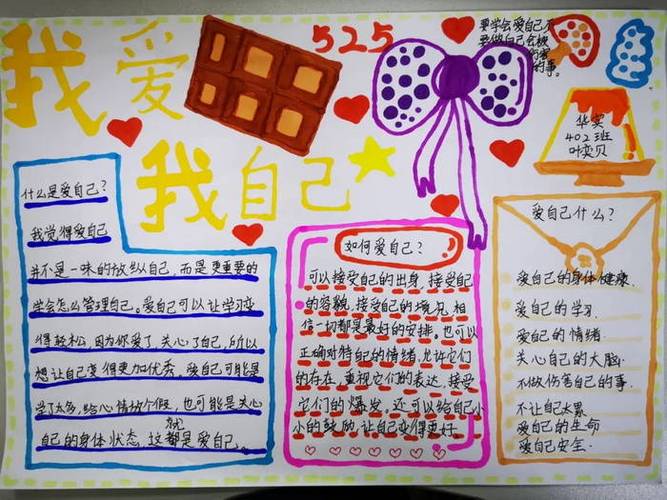 我爱
我自己
525
要学会爱自己,不
要做自己会被
的事。
华实
402班
叶奕贝
什么是爱自己?
我觉得爱自己
并不是一味的放纵自己,而是更重要的
学会怎么管理自己。爱自己可以让学习变
得轻松,因为你爱了,关心了自己,所以
想让自己变得更加优秀。爱自己可能是
学了太多,给心情放个假,也可能是关心
自己的身体状态,这就都是爱自己。
如何爱自己?
可以接受自己的出身,接受自己
的容貌,接受自己的境况,相
信一切都是最好的安排。也可以
正确对待自己的情绪,允许它们
的存在,重视它们的表达,接受
它们的爆发。还可以给自己小
小的鼓励,让自己变得更好。
爱自己什么?
爱自己的身体健康.
爱自己的学习.
爱自己的情绪.
关心自己的大脑.
不做伤害自己的事.
不让自己太累
爱自己的生命
爱自己安全.